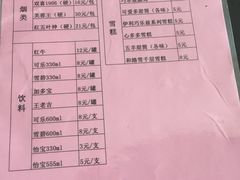 烟类
双喜1906（硬） 16元/包
芙蓉王（硬） 30元/包
红五叶神（硬） 21元/包
饮料
红牛 12/罐
可乐330ml 8/罐
雪碧330ml 8/罐
加多宝 8/罐
王老吉 8/罐
可乐600ml 8元/支
雪碧600ml 8元/支
怡宝330ml 3元/支
怡宝555ml 5/支
雪糕
可爱多甜筒（各味） 8元
伊利巧乐兹系列雪糕 5元
心多多雪糕 5元
五羊甜筒（各味） 5元
和路雪千层雪糕 8元